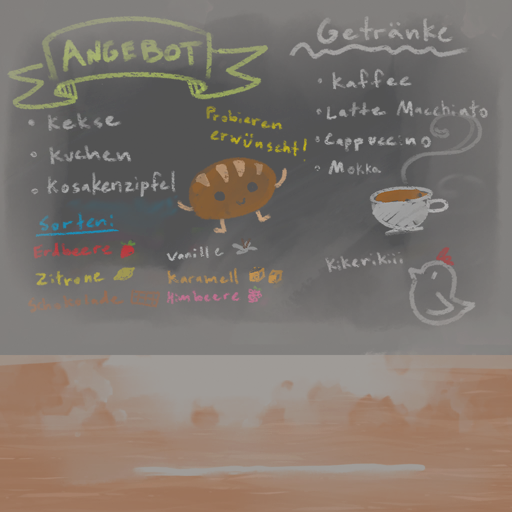 ANGEBOT
• Kekse
• Kuchen
• Kosakenzipfel
Probieren
erwünscht!
Sorten:
Erdbeere
Zitrone
Schokolade
Vanille
Karamell
Himbeere
Getränke
• Kaffee
• Latte Macchiato
• Cappuccino
• Mokka
Kikerikiii